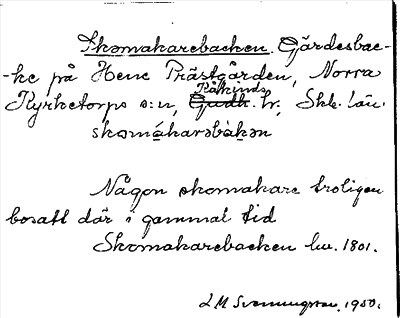 Skomakarebacken. Gärdesbac-
-ke på Hene Prästgården, Norra
Kåkinds
Kyrketorps s:n, Gudh. hr, Skb. län.
skɷmákarəbàkən
Någon skomakare troligen
bosatt där i gammal tid
Skomakarebacken lu. 1801.
L M Svenningson, 1950.